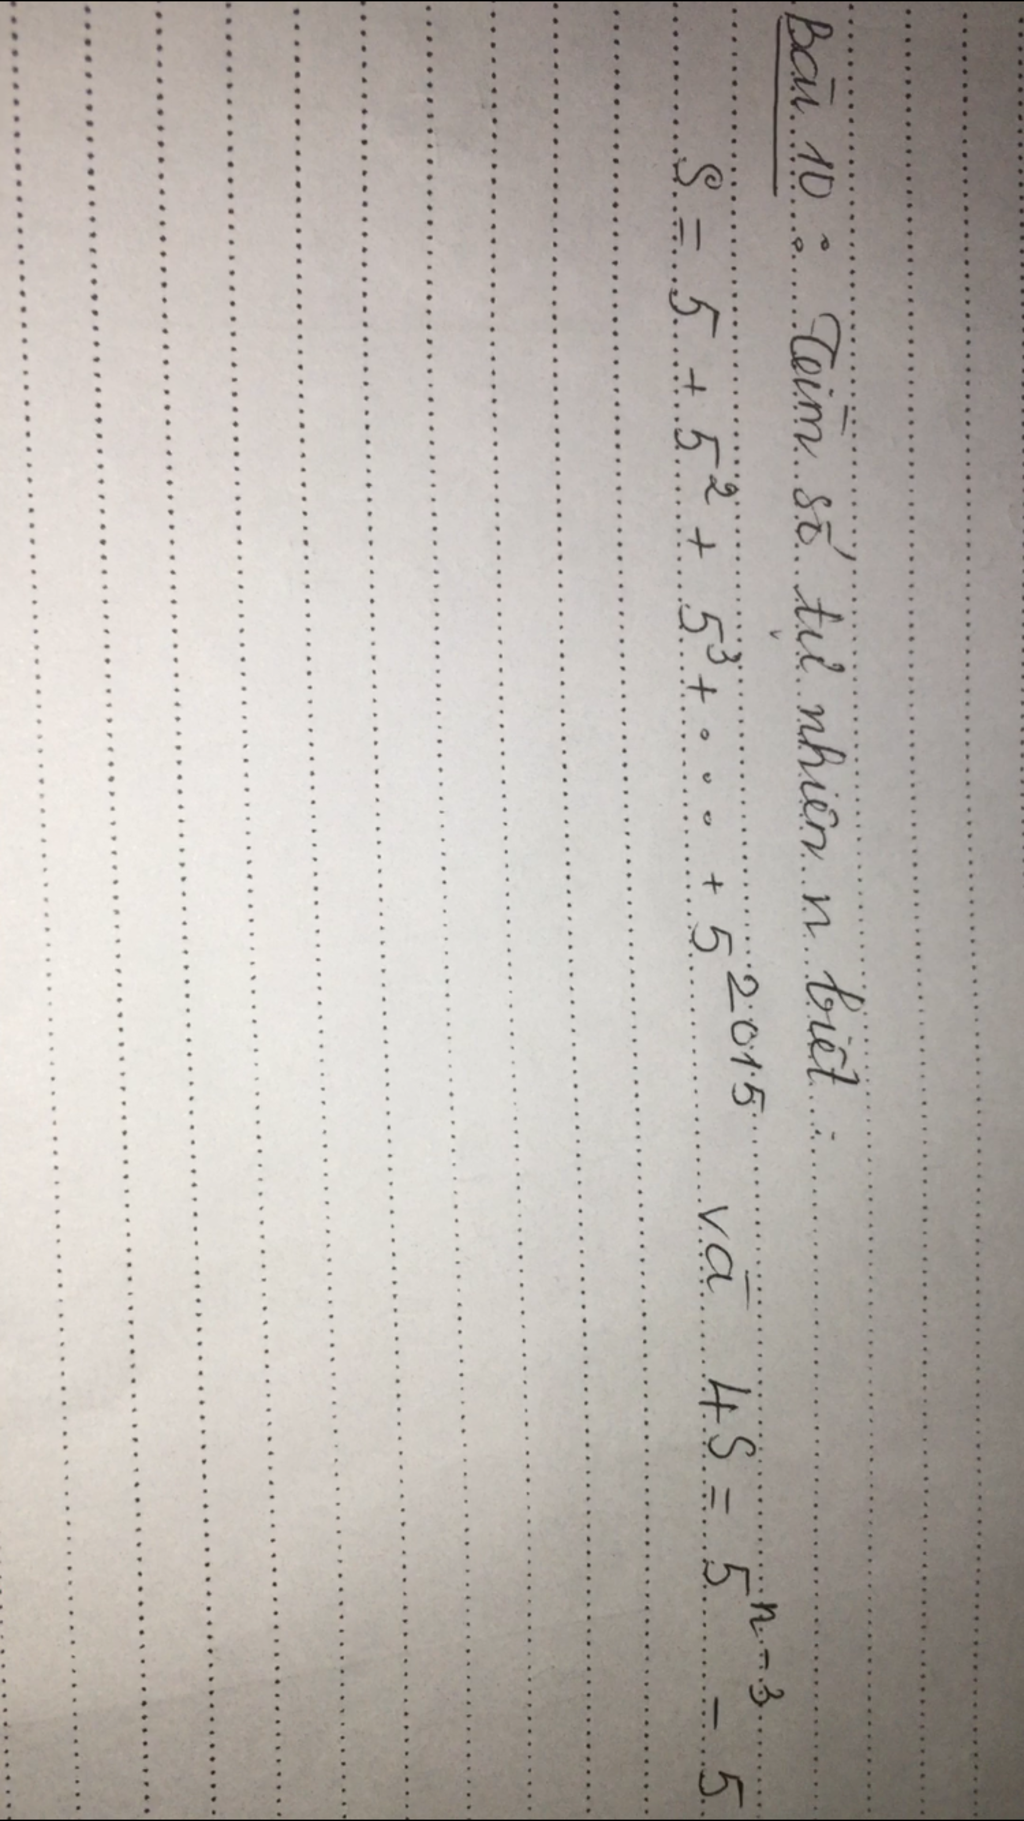 Bài 10 : Tìm số tự nhiên n biết :
S = 5 + 5² + 5³ + ... + 5²⁰¹⁵ và 4S = 5ⁿ⁻³ - 5